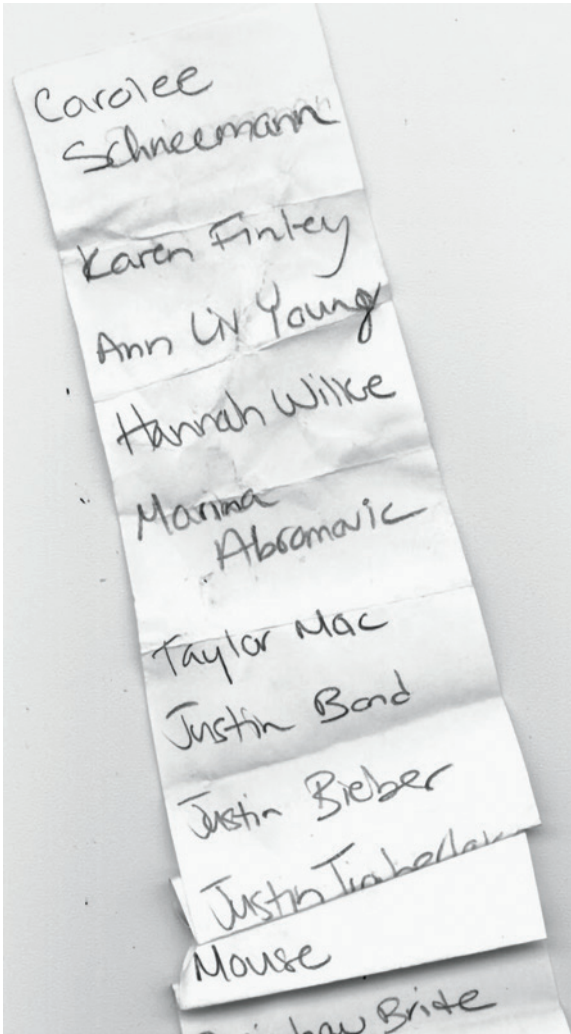 Carolee
Schneemann
Karen Finley
Ann Liv Young
Hannah Wilke
Marina
Abromovic
Taylor Mac
Justin Bond
Justin Bieber
Justin Timberlake
Mouse
Rainbow Brite